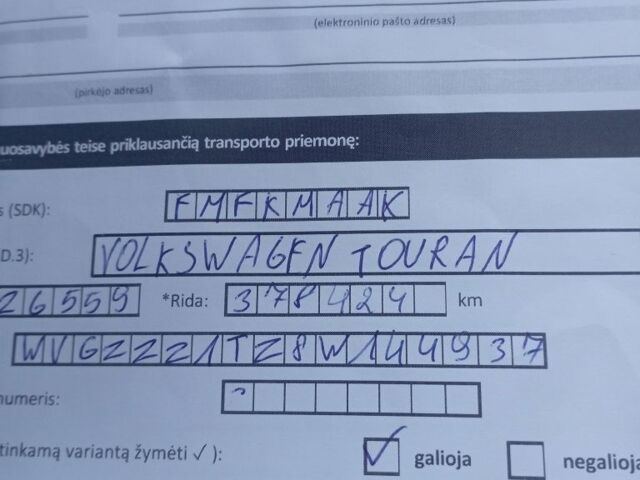 (elektroninio pašto adresas)
(pirkėjo adresas)
uosavybės teise priklausančią transporto priemonę:
s (SDK): FMFKMAAK
D.3): VOLKSWAGEN TOURAN
26559 *Rida: 378424 km
WVGZZZ1TZ8W144937
numeris:
tinkamą variantą žymėti ✓ ): ✓ galioja negalioja